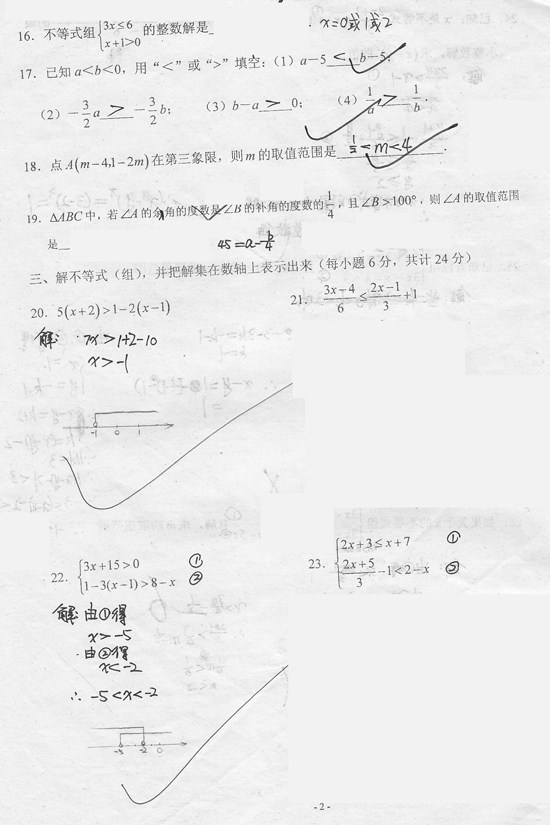 16. 不等式组{3x≤6 x+1>0 的整数解是_ x=0或1或2
17. 已知a<b<0，用“<”或“>”填空：(1) a-5 < b-5；
(2) -3/2 a > -3/2 b； (3) b-a ____ 0； (4) 1/a > 1/b .
18. 点A(m-4,1-2m)在第三象限，则m的取值范围是 1/2<m<4 .
19. ΔABC中，若∠A的余角的度数是∠B的补角的度数的1/4，且∠B>100°，则∠A的取值范围
是_
45=a-b/4
三、解不等式（组），并把解集在数轴上表示出来（每小题6分，共计24分）
20. 5(x+2)>1-2(x-1)
21. (3x-4)/6≤(2x-1)/3+1
解: 7x>1+2-10
x>-1
-1 0 1
22. {3x+15>0 ① 1-3(x-1)>8-x ②
23. {2x+3≤x+7 ① (2x+5)/3-1<2-x ②
解: 由①得
x>-5
由②得
x<-2
∴ -5<x<-2
-5 -2 0
- 2 -